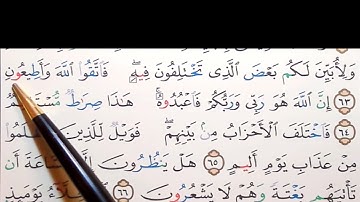 وَلِأُبَيِّنَ لَكُم بَعْضَ الَّذِى تَخْتَلِفُونَ فِيهِ ۖ فَاتَّقُوا اللَّهَ وَأَطِيعُونِ
٦٣ إِنَّ اللَّهَ هُوَ رَبِّى وَرَبُّكُمْ فَاعْبُدُوهُ ۚ هَٰذَا صِرَاطٌ
٦٤ فَاخْتَلَفَ الْأَحْزَابُ مِنۢ بَيْنِهِمْ ۖ فَوَيْلٌ لِّلَّذِينَ
مِنْ عَذَابِ يَوْمٍ أَلِيمٍ ٦٥ هَلْ يَنظُرُونَ أَن
تَأْتِيَهُم بَغْتَةً وَهُمْ لَا يَشْعُرُونَ ٦٦ يَوْمَئِذٍ